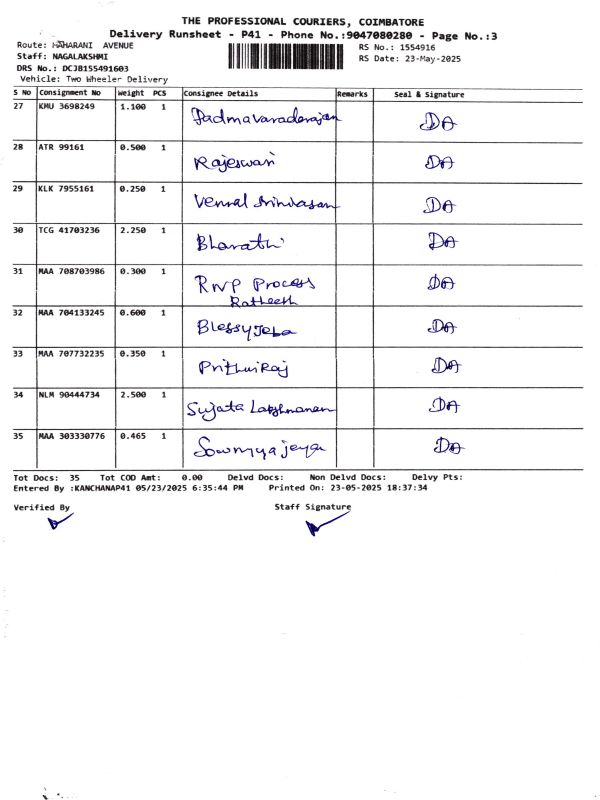 THE PROFESSIONAL COURIERS, COIMBATORE
Delivery Runsheet - P41 - Phone No.:9047080280 - Page No.:3
Route: MAHARANI AVENUE
Staff: NAGALAKSHMI
DRS No.: DCJB155491603
Vehicle: Two Wheeler Delivery
RS No.: 1554916
RS Date: 23-May-2025
S No Consignment No Weight PCS Consignee Details Remarks Seal & Signature
27 KMU 3698249 1.100 1 Padmavaradarajan DA
28 ATR 99161 0.500 1 Rajeswari DA
29 KLK 7955161 0.250 1 Srinivasan DA
30 TCG 41703236 2.250 1 Bharathi DA
31 MAA 708703986 0.300 1 RNP Process DA
Ratheesh
32 MAA 704133245 0.600 1 BlessyJeba DA
33 MAA 707732235 0.350 1 PrithuiRaj DA
34 NLM 90444734 2.500 1 Sujata Lakshmanan DA
35 MAA 303330776 0.465 1 Sowmya jeya DA
Tot Docs: 35 Tot COD Amt: 0.00 Delvd Docs: Non Delvd Docs: Delvy Pts:
Entered By :KANCHANAP41 05/23/2025 6:35:44 PM Printed On: 23-05-2025 18:37:34
Verified By Staff Signature